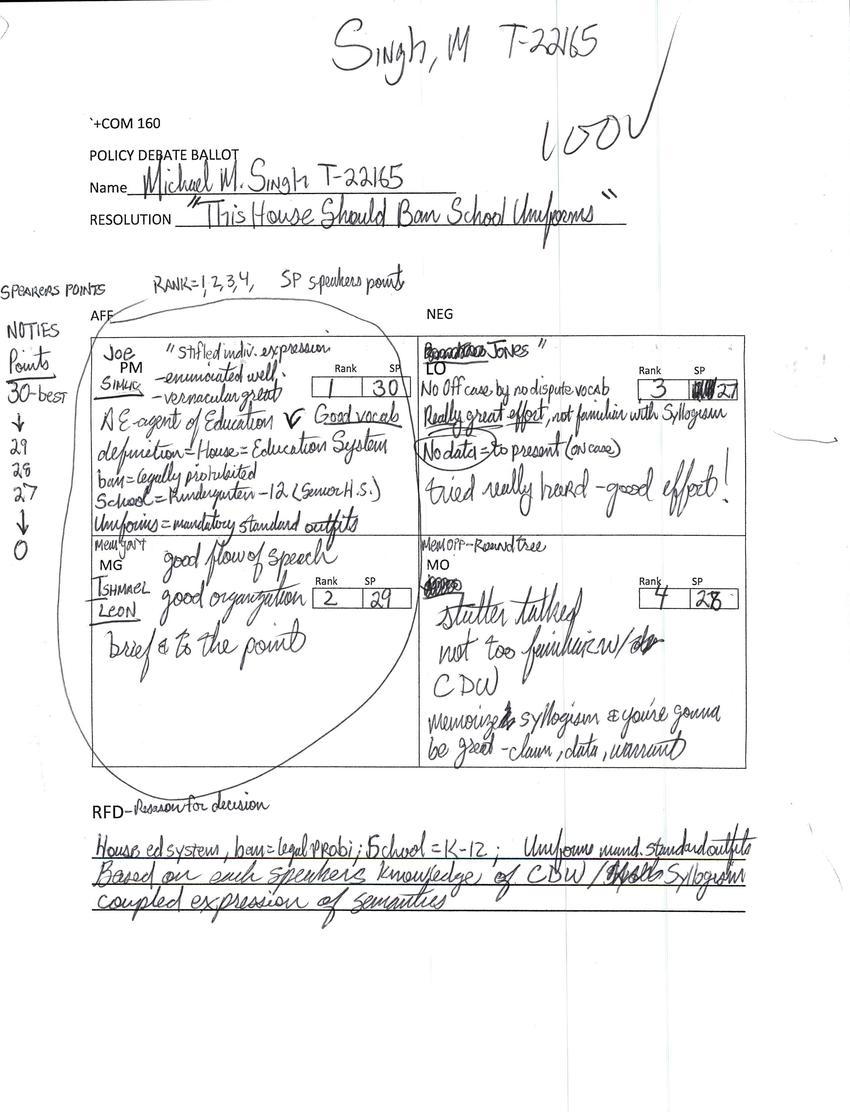 Singh, M T-22165
100✓
`+COM 160
POLICY DEBATE BALLOT
Name Michael M. Singh T-22165
RESOLUTION "This House Should Ban School Uniforms"
SPEAKERS POINTS
RANK=1,2,3,4, SP speakers points
AFF
NEG
NOTIES
Points
30-best
↓
29
28
27
↓
0
Joe "Stifled indiv. expression
PM
-enunciated well.
-vernacular great
Rank SP
1 30
A E-agent of Education ✓ Good vocab
definition=House=Education System
ban=legally prohibited
School=Kindergarten-12 (Senior H.S.)
Uniforms=mandatory standard outfits
JONES "
LO
Rank SP
3 27
No Off case by no dispute vocab
Really great effort, not familiar with Syllogism
No data=to present (on case)
tried really hard -good effort!
Mem gov't
MG
ISHMAEL
LEON
good flow of speech
good organization
brief & to the point
Rank SP
2 29
Mem OPP-Roundtree
MO
Rank SP
4 28
stutter talked
not too familiar w/
CDW
Memorize syllogism & you're gonna
be great -claim, data, warrant
RFD-Reason for decision
House ed system, ban=legal probi; School=K-12; Uniforms mand. standard outfits
Based on each speakers knowledge of CDW / Syllogism
coupled expression of semantics